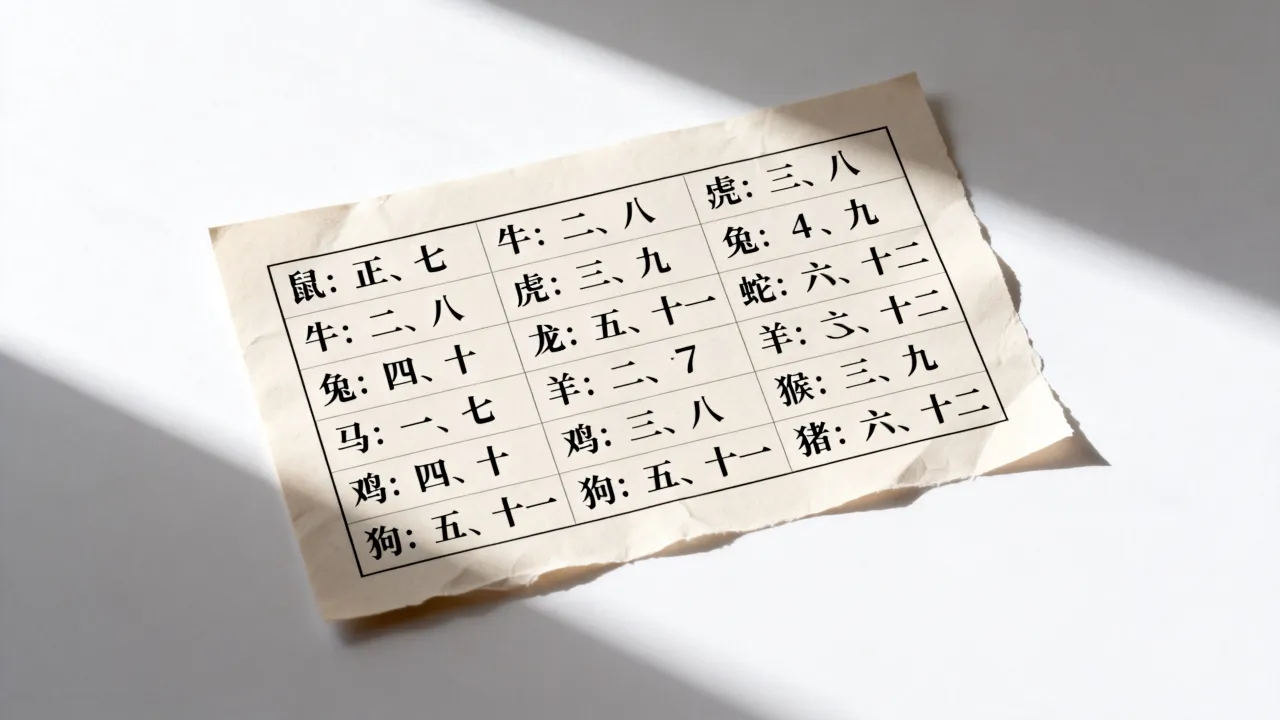 鼠：正、七 牛：二、八 虎：三、八
牛：二、八 虎：三、九 兔：4、九
兔：四、十 龙：五、十一 蛇：六、十二
马：一、七 羊：二、7 羊：六、十二
鸡：四、十 鸡：三、八 猴：三、九
狗：五、十一 狗：五、十一 猪：六、十二